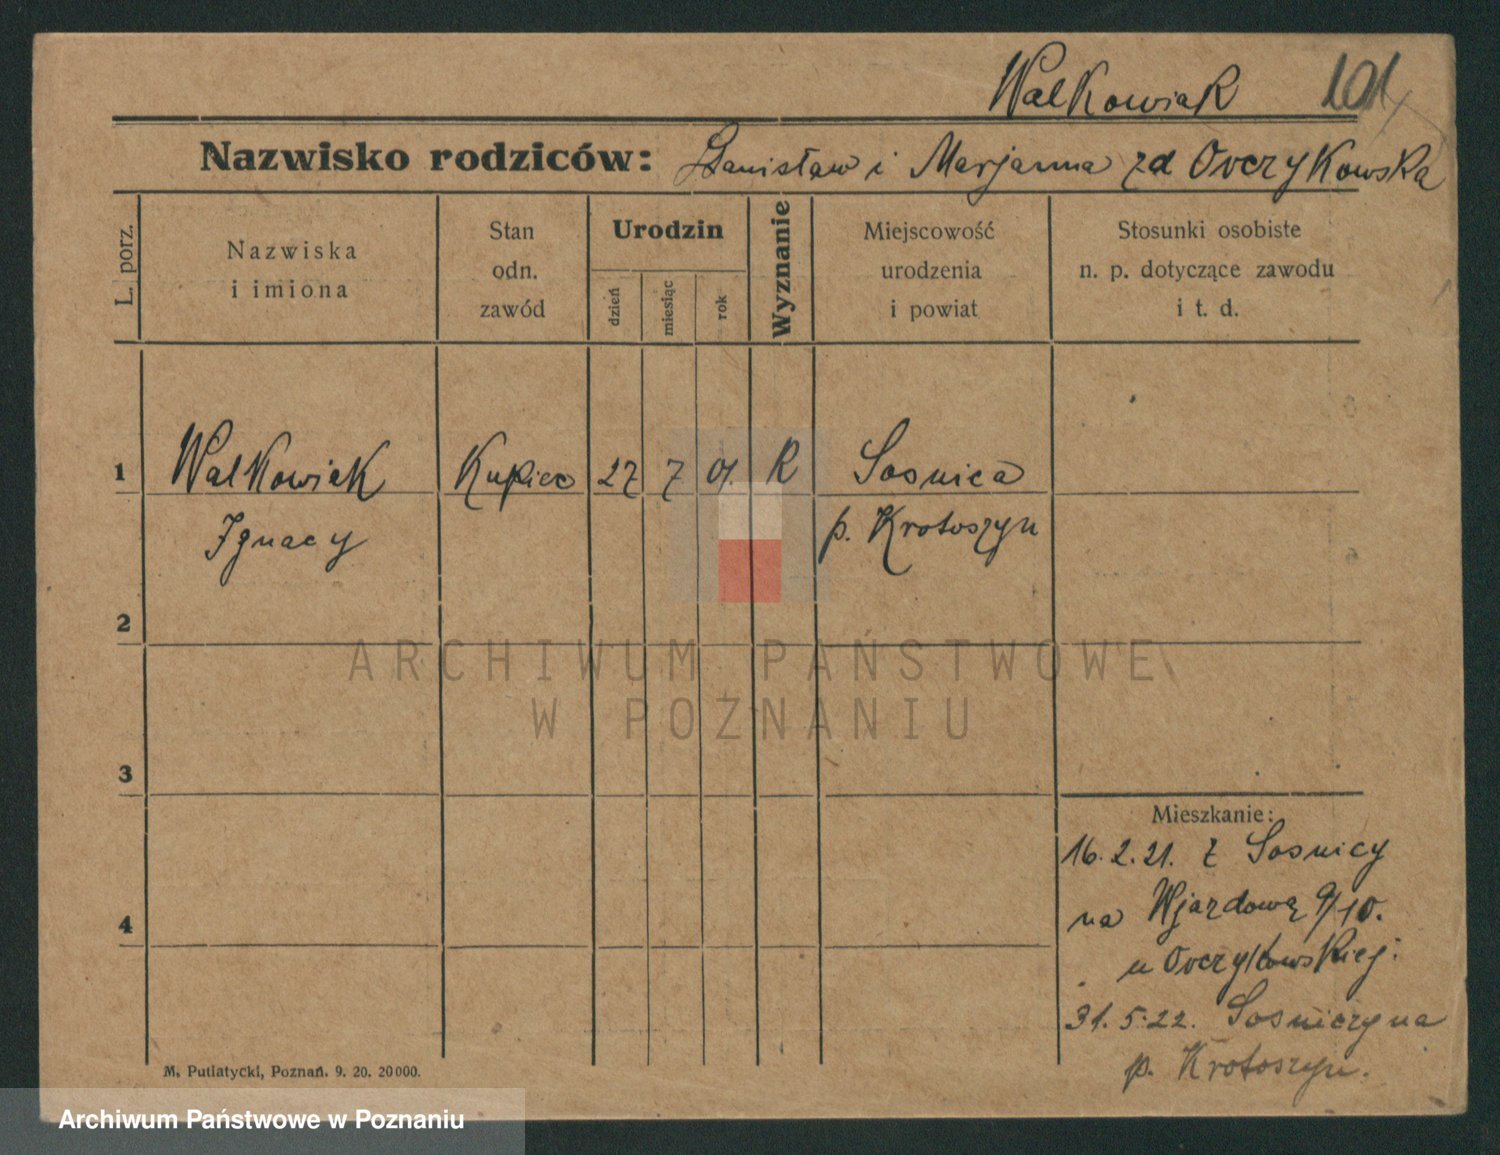 Walkowiak 101
Nazwisko rodziców: Stanisław i Marjanna zd Owczykowska
L. porz.
Nazwiska
i imiona
Stan
odn.
zawód
Urodzin
dzień
miesiąc
rok
Wyznanie
Miejscowość
urodzenia
i powiat
Stosunki osobiste
n. p. dotyczące zawodu
i t. d.
1 Walkowiak Kupiec 27 7 01. R Sosnica
Ignacy p. Krotoszyn
2
ARCHIWUM PAŃSTWOWE
W POZNANIU
3
Mieszkanie:
16.2.21. z Sosnicy
4
na Wjazdową 9/10.
u Owczykowskiej.
31.5.22. Sosniczyna
p. Krotoszyn.
M. Putiatycki, Poznań. 9. 20. 20000.
Archiwum Państwowe w Poznaniu